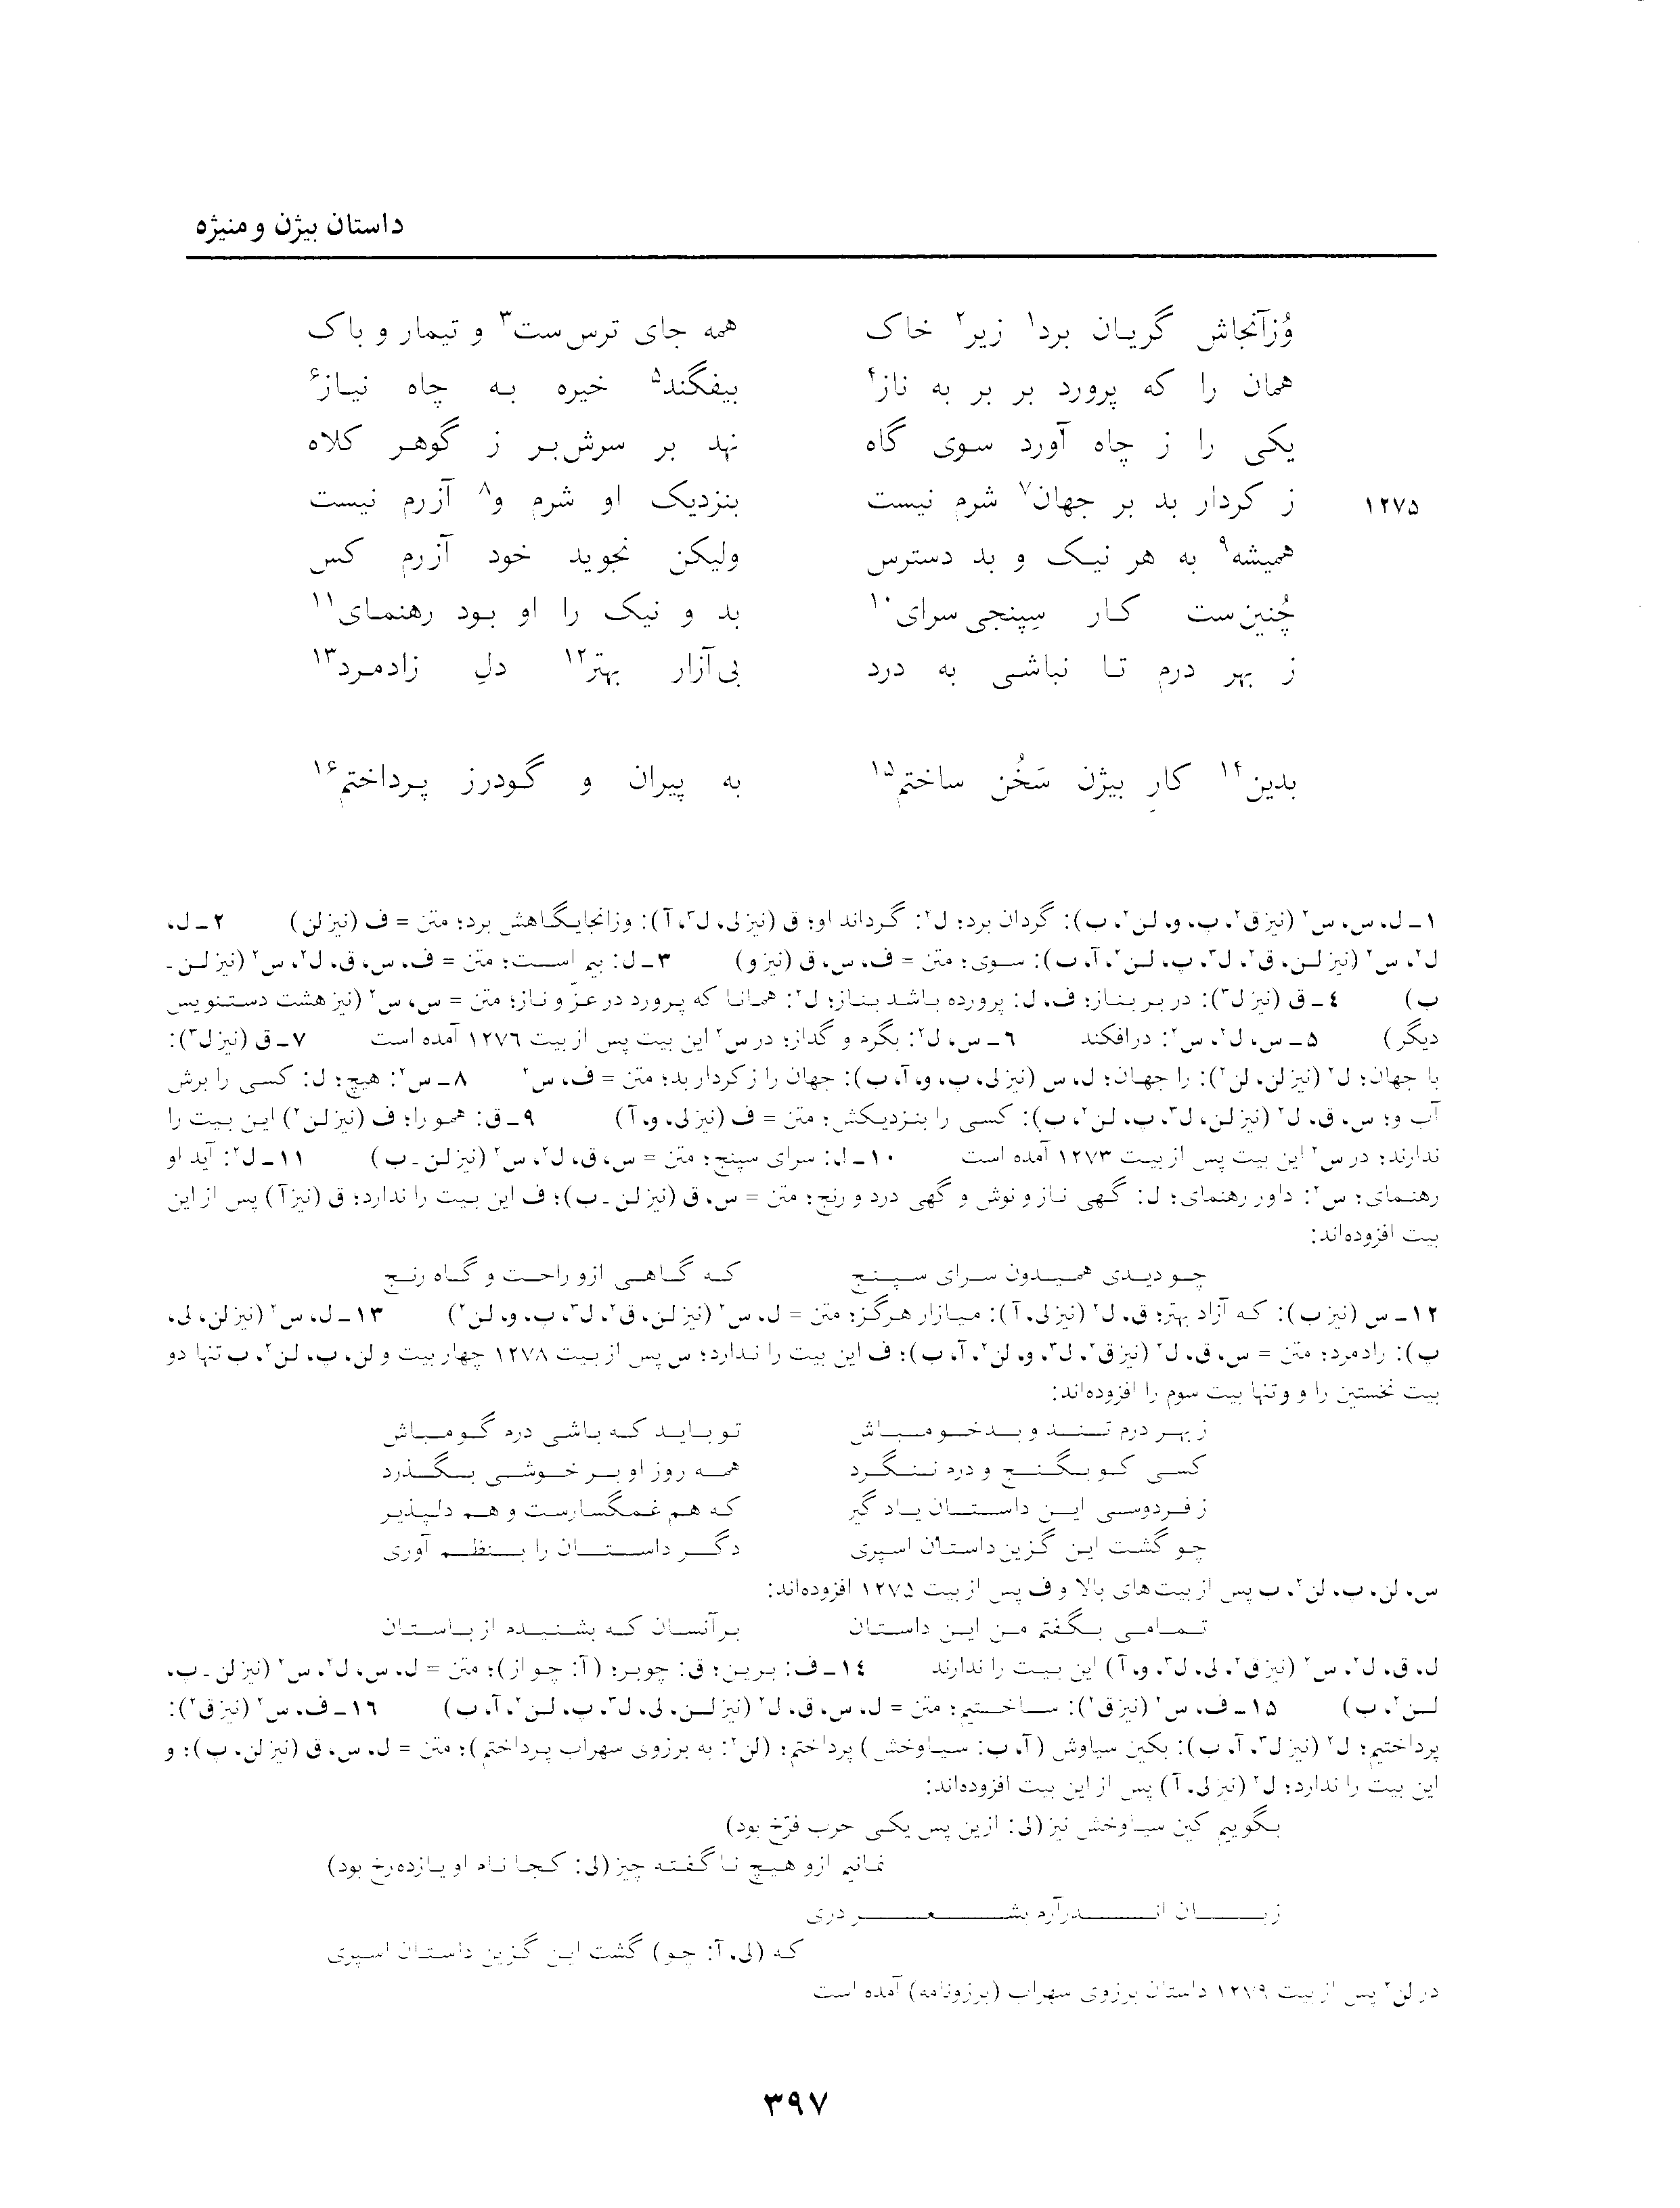 داستان بیژن و منیژه
وُزآنجاش گریان برد۱ زیر۲ خاک همه جای ترس‌ست۳ و تیمار و باک
همان را که پرورد بر بر به ناز۴ بیفگند۵ خیره به چاه نیاز۶
یکی را ز چاه آورد سوی گاه نهد بر سرش‌بر ز گوهر کلاه
۱۲۷۵ ز کردار بد بر جهان۷ شرم نیست بنزدیک او شرم و۸ آزرم نیست
همیشه۹ به هر نیک و بد دسترس ولیکن نجوید خود آزرم کس
چُنین‌ست کار سِپنجی‌سرای۱۰ بد و نیک را او بود رهنمای۱۱
ز بهر درم تا نباشی به درد بی‌آزار بهتر۱۲ دلِ زادمرد۱۳
بدین۱۴ کارِ بیژن سَخُن ساختم۱۵ به پیران و گودرز پرداختم۱۶
۱ـ ل، س، س۲ (نیز ق۲، پ، و، لن۲، ب): گردان برد؛ ل۲: گرداند او؛ ق (نیز لی، ل۳، آ): وزانجایگاهش برد؛ متن = ف (نیز لن) ۲ـ ل،
ل۲، س۲ (نیز لن، ق۲، ل۳، پ، لن۲، آ، ب): سوی؛ متن = ف، س، ق (نیز و) ۳ـ ل: بیم است؛ متن = ف، س، ق، ل۲، س۲ (نیز لن ـ
ب) ۴ـ ق (نیز ل۳): در بر بناز؛ ف، ل: پرورده باشد بناز؛ ل۲: همانا که پرورد در عزّ و ناز؛ متن = س، س۲ (نیز هشت دستنویس
دیگر) ۵ـ س، ل۲، س۲: درافکند ۶ـ س، ل۲: بگرم و گداز؛ در س۲ این بیت پس از بیت ۱۲۷۶ آمده است ۷ـ ق (نیز ل۳):
با جهان؛ ل۲ (نیز لن، لن۲): را جهان؛ ل، س (نیز لی، پ، و، آ، ب): جهان را ز کردار بد؛ متن = ف، س۲ ۸ـ س۲: هیچ؛ ل: کسی را برش
آب و؛ س، ق، ل۲ (نیز لن، ل۳، پ، لن۲، ب): کسی را بنزدیکش؛ متن = ف (نیز لی، و، آ) ۹ـ ق: همو را؛ ف (نیز لن۲) این بیت را
ندارند؛ در س۲ این بیت پس از بیت ۱۲۷۳ آمده است ۱۰ـ ل: سرای سپنج؛ متن = س، ق، ل۲، س۲ (نیز لن ـ ب) ۱۱ـ ل۲: آید او
رهنمای؛ س۲: داور رهنمای؛ ل: گهی ناز و نوش و گهی درد و رنج؛ متن = س، ق (نیز لن ـ ب)؛ ف این بیت را ندارد؛ ق (نیز آ) پس از این
بیت افزوده‌اند:
چو دیدی همیدون سرای سپنج که گاهی ازو راحت و گاه رنج
۱۲ـ س (نیز ب): که آزاد بهتر؛ ق، ل۲ (نیز لی، آ): میازار هرگز؛ متن = ل، س۲ (نیز لن، ق۲، ل۳، پ، و، لن۲) ۱۳ـ ل، س۲ (نیز لن، لی،
پ): رادمرد؛ متن = س، ق، ل۲ (نیز ق۲، ل۳، و، لن۲، آ، ب)؛ ف این بیت را ندارد؛ س پس از بیت ۱۲۷۸ چهار بیت و لن، پ، لن۲، ب تنها دو
بیت نخستین را و و تنها بیت سوم را افزوده‌اند:
ز بهر درم تند و بدخو مباش تو باید که باشی درم گو مباش
کسی کو بگنج و درم ننگرد همه روز او بر خوشی بگذرد
ز فردوسی این داستان یاد گیر که هم غمگسارست و هم دلپذیر
چو گشت این گزین داستان اسپری دگر داستان را بنظم آوری
س، لن، پ، لن۲، ب پس از بیت‌های بالا و ف پس از بیت ۱۲۷۵ افزوده‌اند:
تمامی بگفتم من این داستان بر آنسان که بشنیده از باستان
ل، ق، ل۲، س۲ (نیز ق۲، لی، ل۳، و، آ) این بیت را ندارند ۱۴ـ ف: برین؛ ق: چوبر؛ (آ: چو از)؛ متن = ل، س، ل۲، س۲ (نیز لن ـ پ،
لن۲، ب) ۱۵ـ ف، س۲ (نیز ق۲): ساختیم؛ متن = ل، س، ق، ل۲ (نیز لن، لی، ل۳، پ، لن۲، آ، ب) ۱۶ـ ف، س۲ (نیز ق۲):
پرداختیم؛ ل۲ (نیز ل۳، آ، ب): بکین سیاوش (آ، ب: سیاوخش) پرداختم؛ (لن۲: به برزوی سهراب پرداختم)؛ متن = ل، س، ق (نیز لن، پ)؛ و
این بیت را ندارد؛ ل۲ (نیز لی، آ) پس از این بیت افزوده‌اند:
بگوییم کین سیاوخش نیز (لی: ازین پس یکی حرب فرّخ بود)
نمانیم ازو هیچ ناگفته چیز (لی: کجا نام او یازده‌رخ بود)
زبان اندرآرم بشعر دری
که (لی، آ: چو) گشت این گزین داستان اسپری
در لن۲ پس از بیت ۱۲۷۹ داستان برزوی سهراب (برزونامه) آمده است
۳۹۷